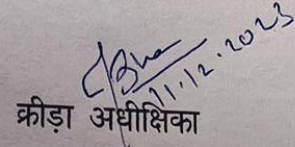 11.12.2023
क्रीड़ा अधीक्षिका